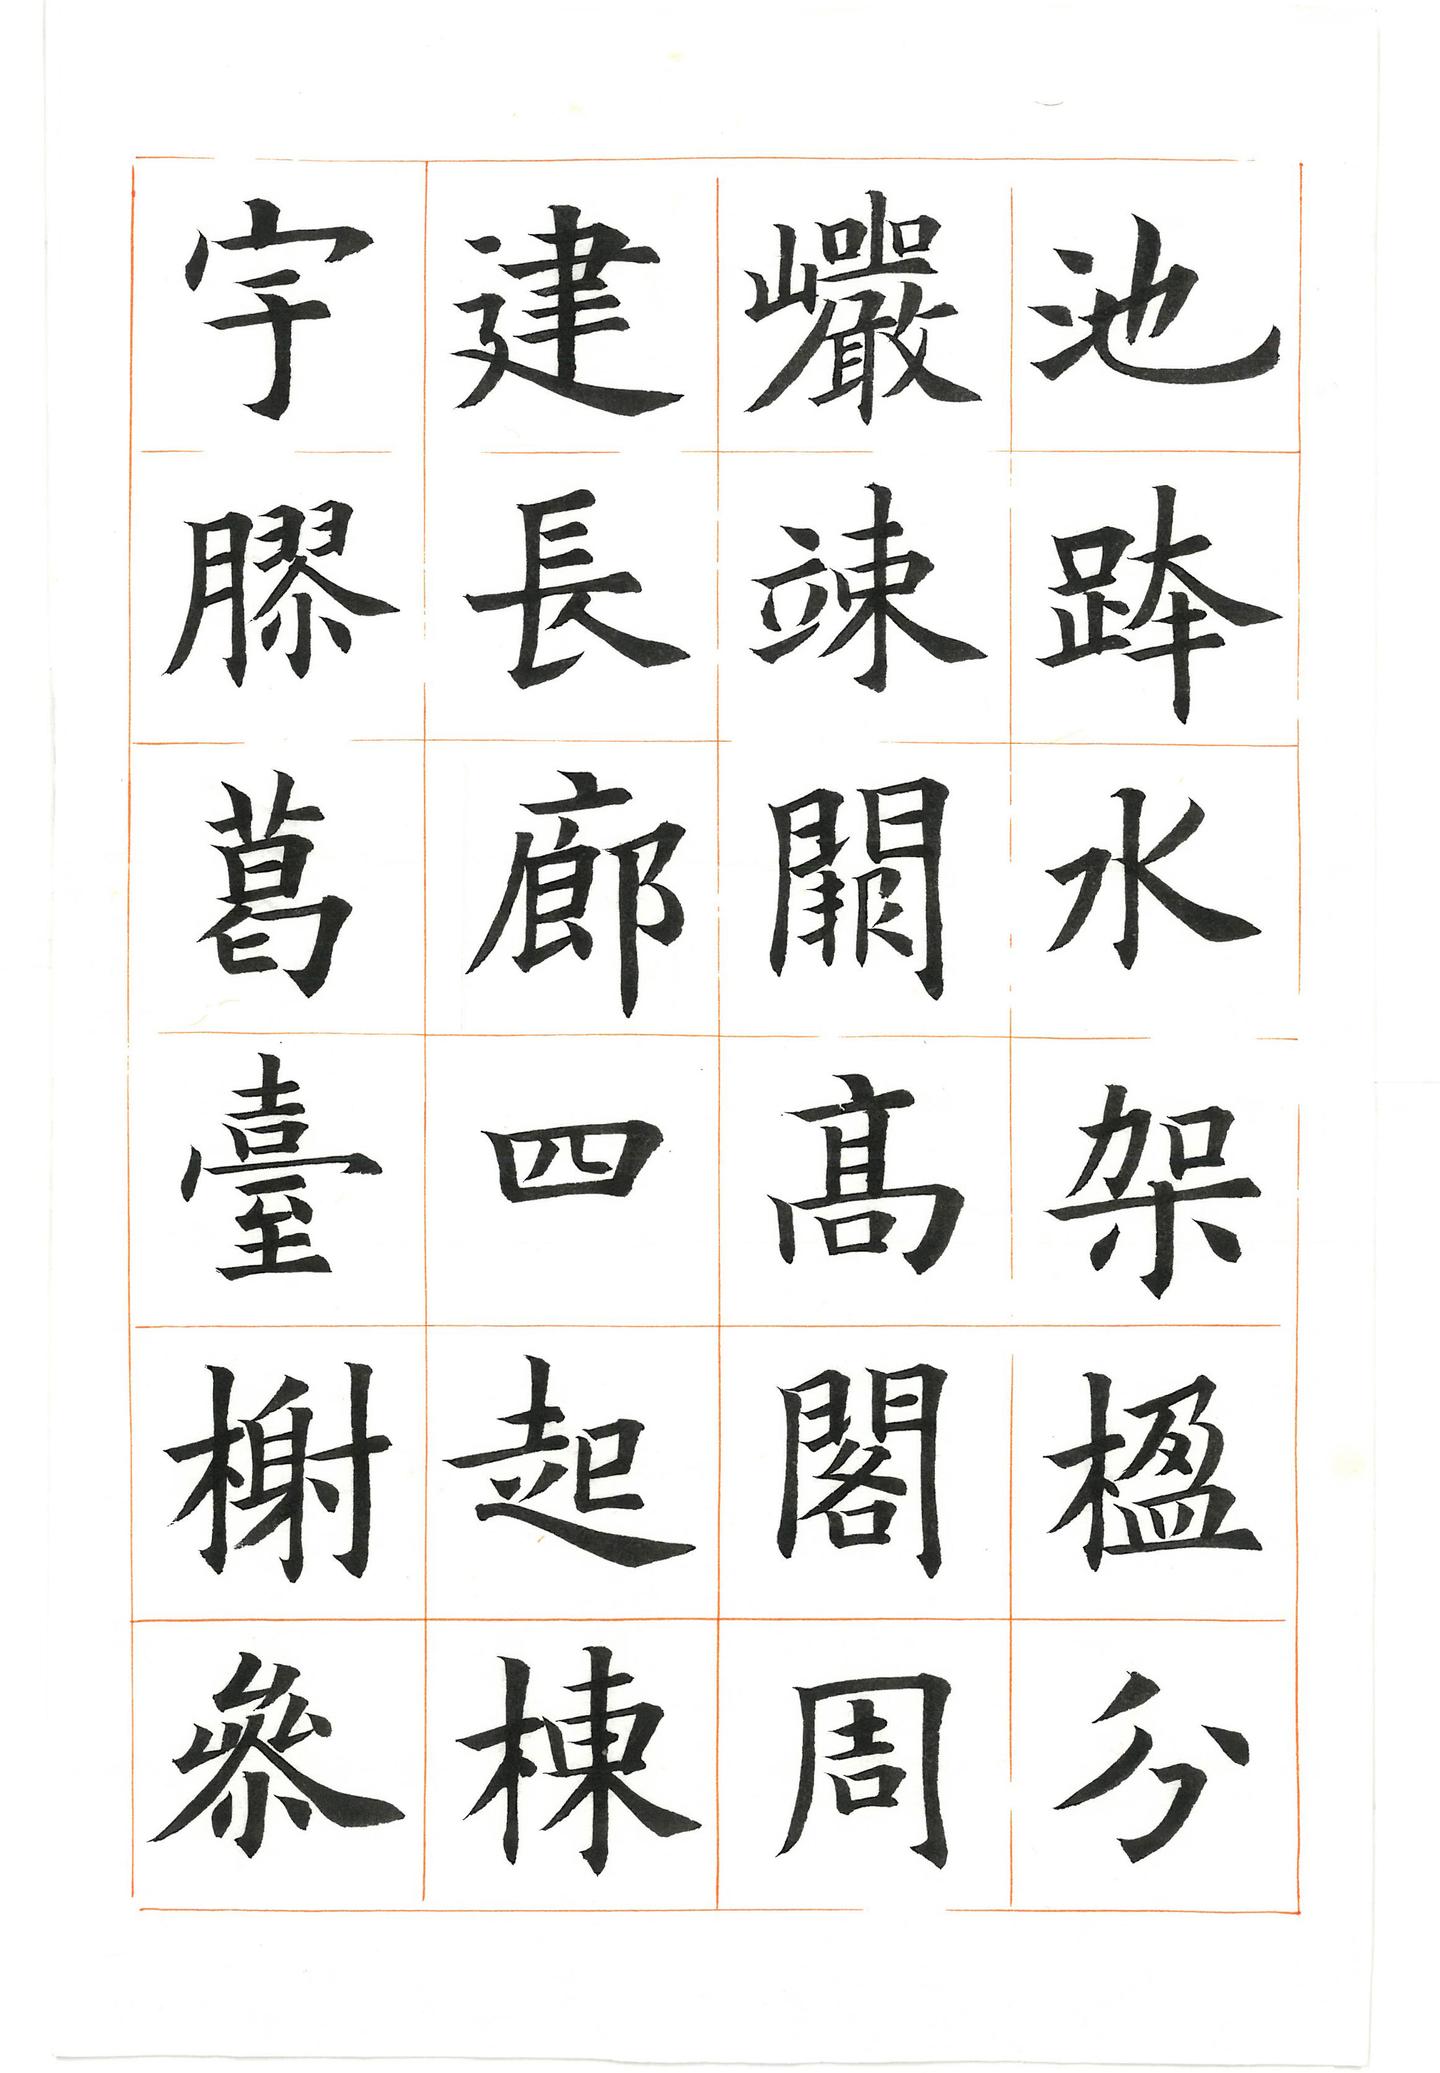 池跸水架楹分
巖竦闕高閣周
建長廊四起棟
宇膠葛臺榭參